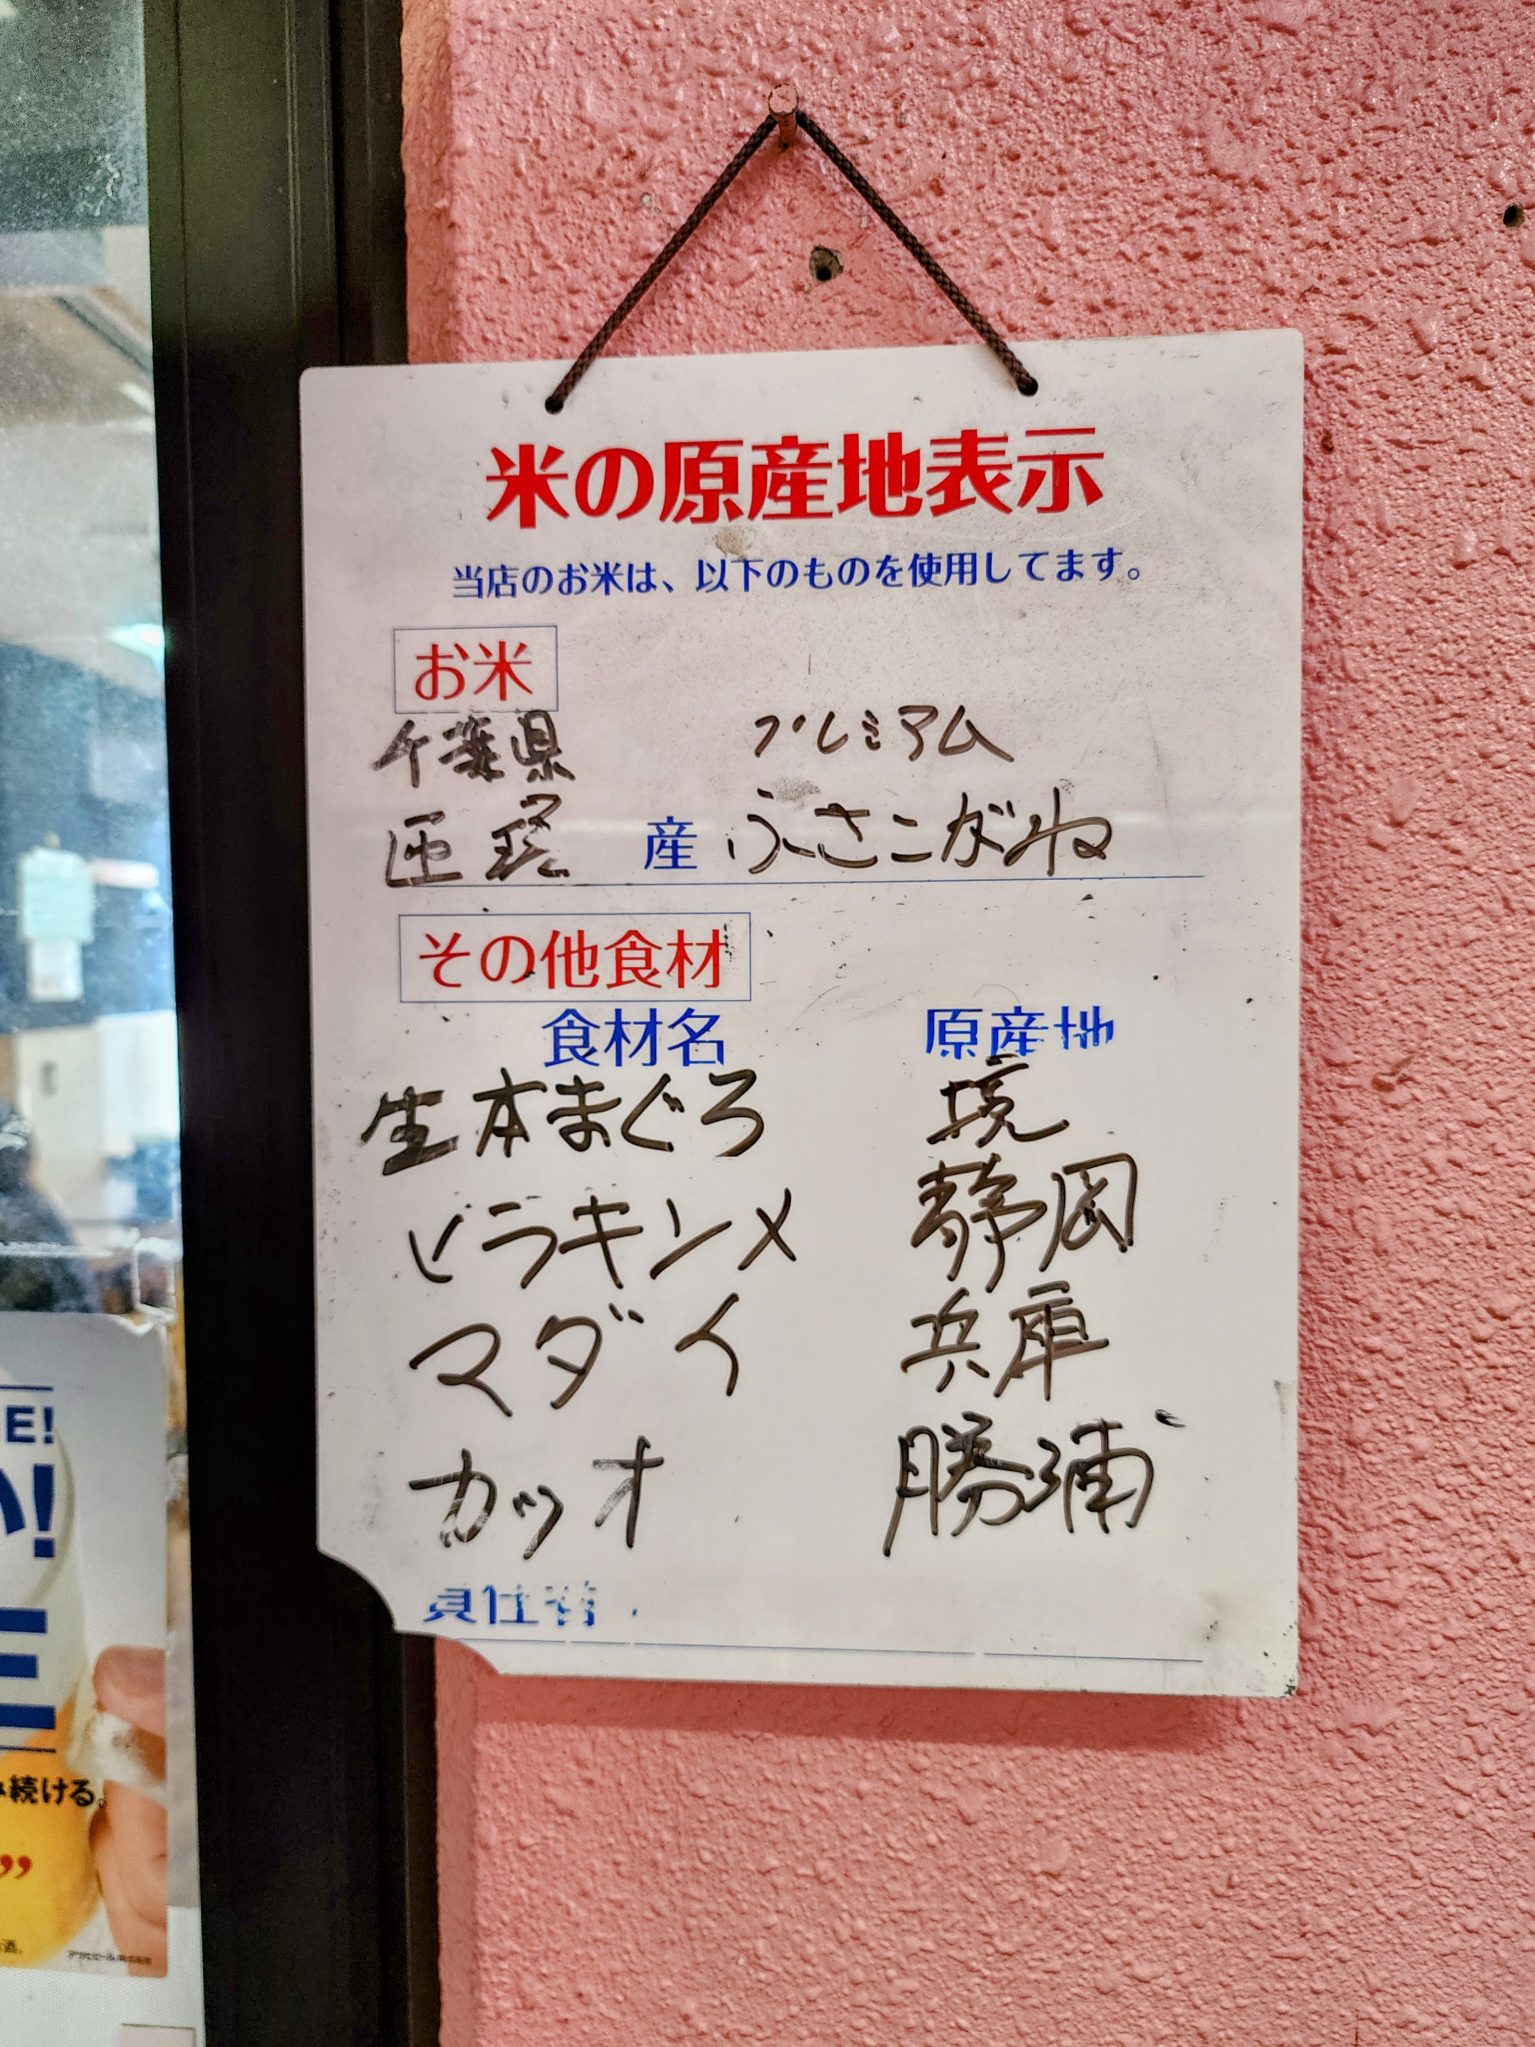 米の原産地表示
当店のお米は、以下のものを使用してます。
お米
千葉県 プレミアム
匝瑳 産 ふさこがね
その他食材
食材名 原産地
生本まぐろ 境
ヒラキンメ 静岡
マダイ 兵庫
カツオ 勝浦
責任者
E!
い!
み続ける。
”
酒。
アサヒビール株式会社